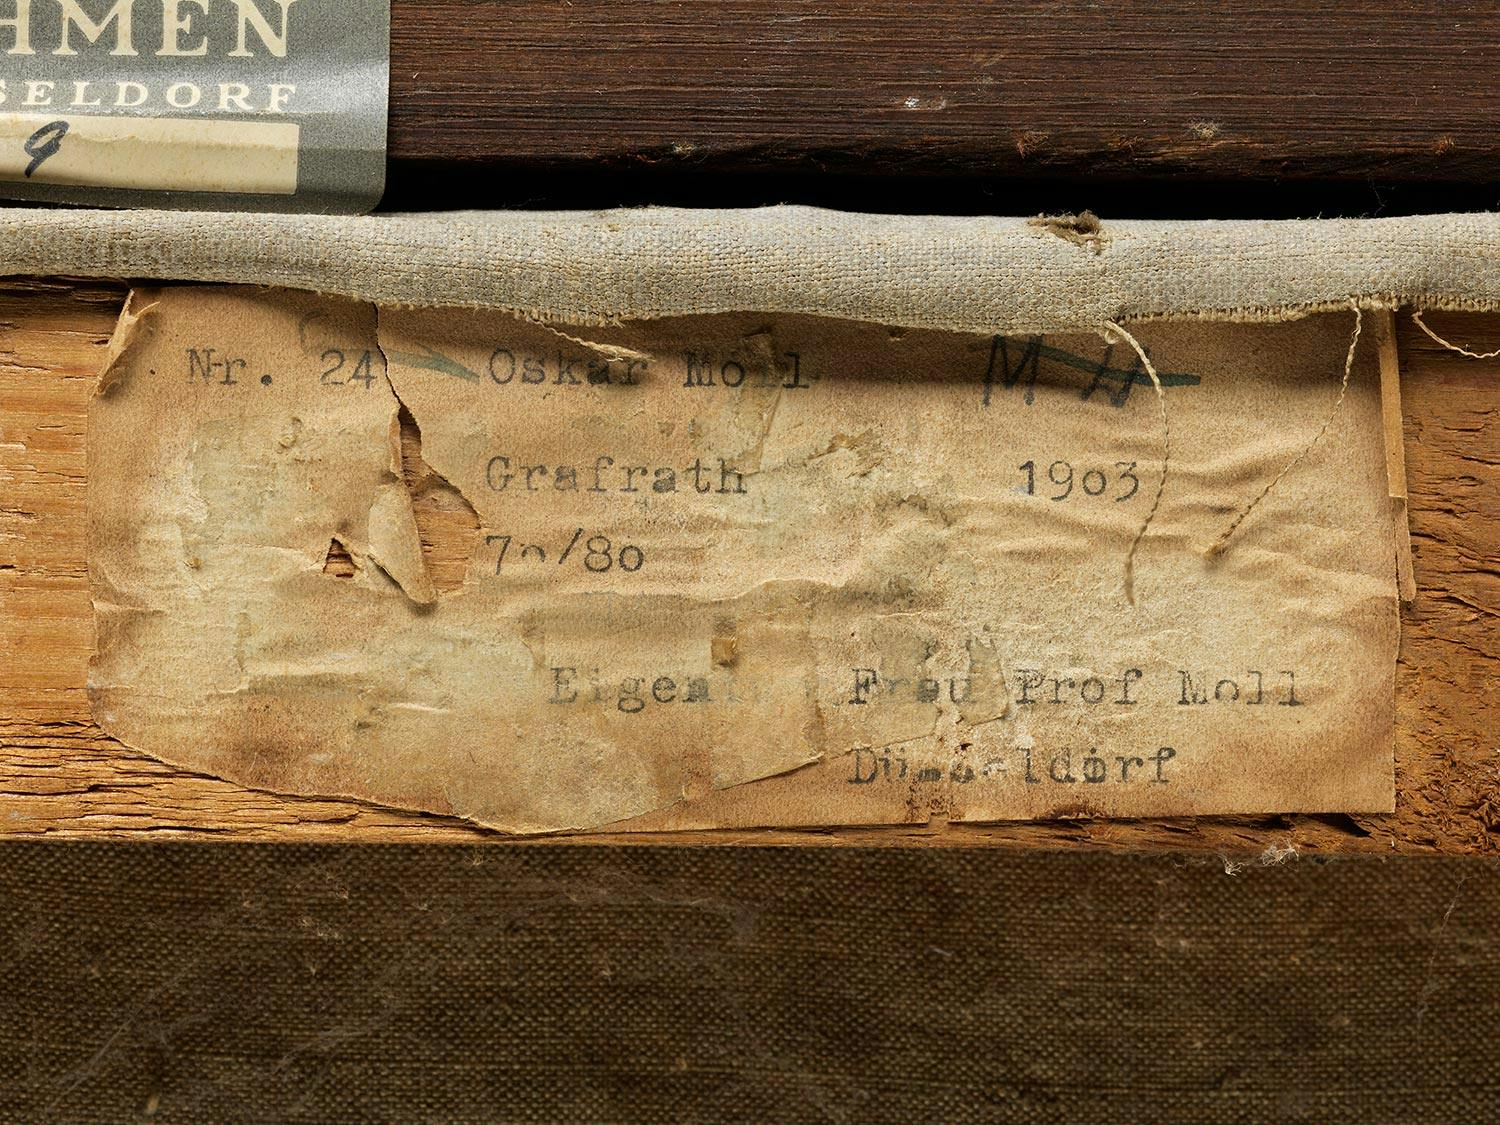 HMEN
SELDORF
9
Nr. 24 Oskar Moll M
Grafrath 1903
70/80
Eigent Frau Prof Moll
Düsseldorf